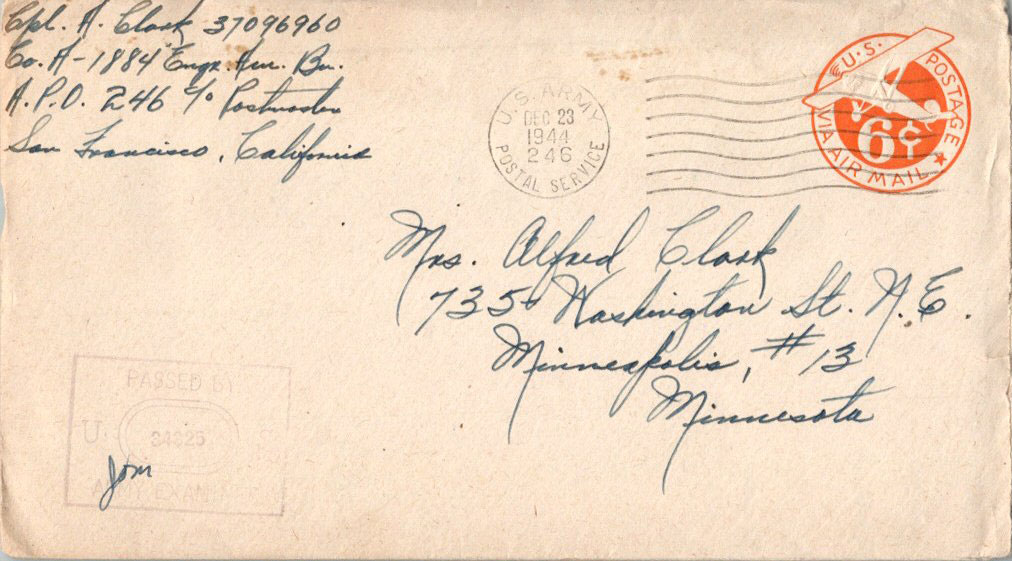 Cpl. A. Clark 37096960
Co. A - 1884 Engr. Avn. Bn.
A.P.O. 246 c/o Postmaster
San Francisco, California
U.S. ARMY
DEC 23
1944
246
POSTAL SERVICE
U.S. POSTAGE
6¢
VIA AIR MAIL
Mrs. Alfred Clark
735 Washington St. N.E.
Minneapolis, #13
Minnesota
PASSED BY
U.
ARMY EXAMINER